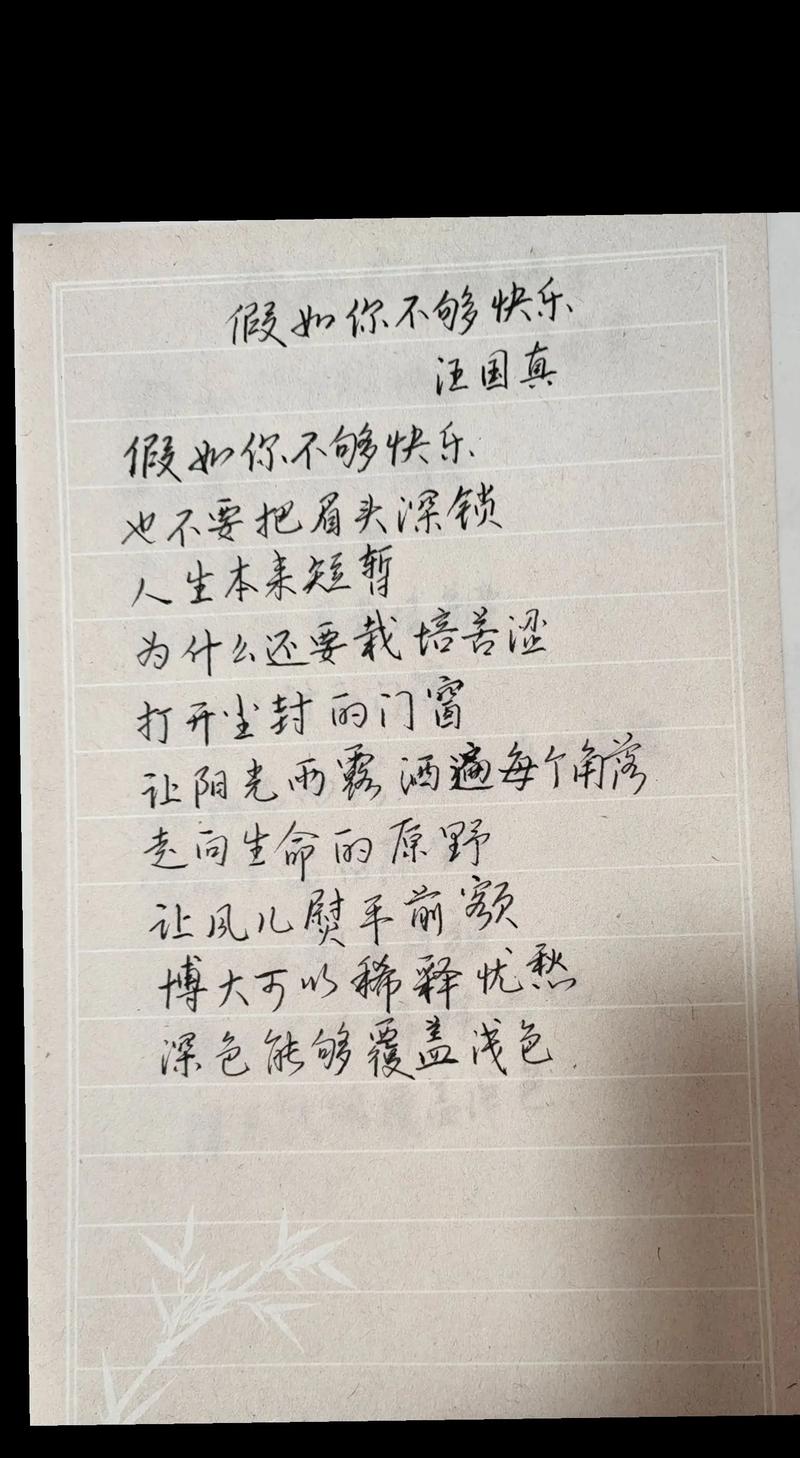 假如你不够快乐
汪国真
假如你不够快乐
也不要把眉头深锁
人生本来短暂
为什么还要栽培苦涩
打开尘封的门窗
让阳光雨露洒遍每个角落
走向生命的原野
让风儿熨平前额
博大可以稀释忧愁
深色能够覆盖浅色